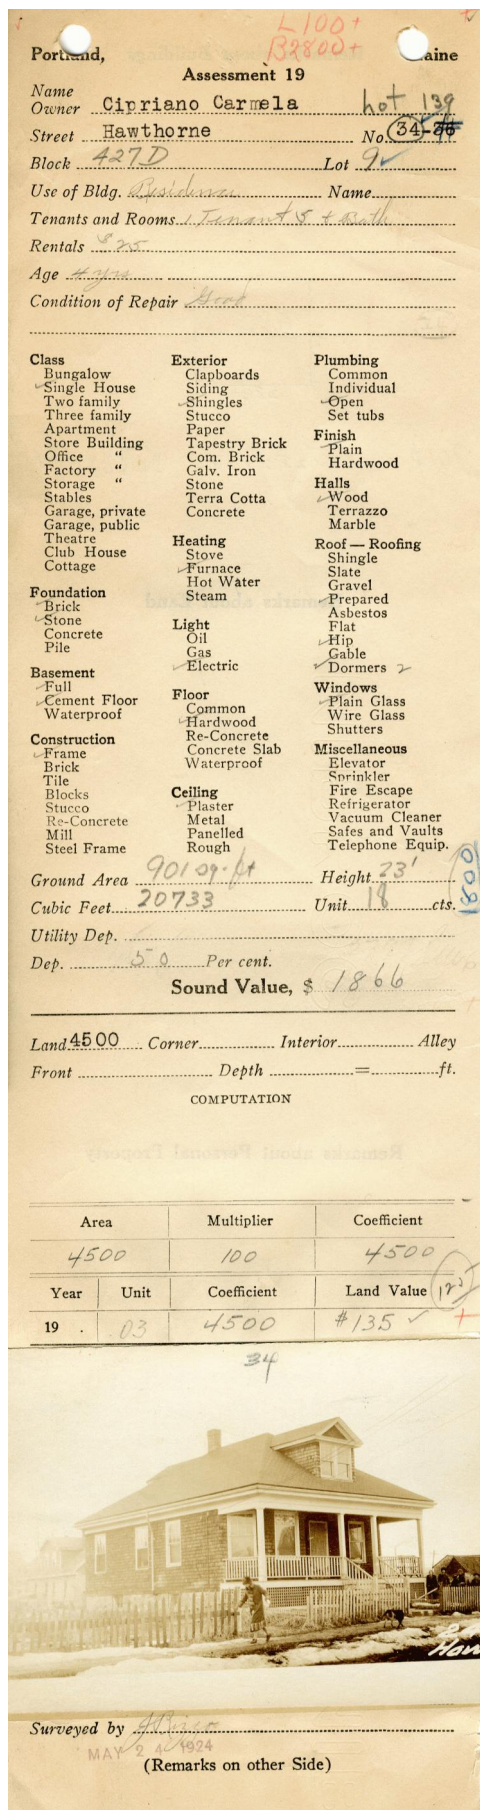 L100+
B2800+
Portland, Maine
Assessment 19
Name
Owner Cipriano Carmela Lot 139
Street Hawthorne No. 34-36
Block 427D Lot 9 ✓
Use of Bldg. Residence Name
Tenants and Rooms 1 Tenant 5 + Bath
Rentals $25
Age 4 yrs
Condition of Repair Good
Class
Bungalow
✓Single House
Two family
Three family
Apartment
Store Building
Office "
Factory "
Storage "
Stables
Garage, private
Garage, public
Theatre
Club House
Cottage
Foundation
✓Brick
✓Stone
Concrete
Pile
Basement
✓Full
✓Cement Floor
Waterproof
Construction
✓Frame
Brick
Tile
Blocks
Stucco
Re-Concrete
Mill
Steel Frame
Exterior
Clapboards
Siding
✓Shingles
Stucco
Paper
Tapestry Brick
Com. Brick
Galv. Iron
Stone
Terra Cotta
Concrete
Heating
Stove
✓Furnace
Hot Water
Steam
Light
Oil
Gas
✓Electric
Floor
Common
✓Hardwood
Re-Concrete
Concrete Slab
Waterproof
Ceiling
✓Plaster
Metal
Panelled
Rough
Plumbing
Common
Individual
✓Open
Set tubs
Finish
✓Plain
Hardwood
Halls
✓Wood
Terrazzo
Marble
Roof — Roofing
Shingle
Slate
Gravel
✓Prepared
Asbestos
Flat
✓Hip
Gable
✓Dormers 2
Windows
✓Plain Glass
Wire Glass
Shutters
Miscellaneous
Elevator
Sprinkler
Fire Escape
Refrigerator
Vacuum Cleaner
Safes and Vaults
Telephone Equip.
Ground Area 901 sq. ft Height 23'
Cubic Feet 20733 Unit 18 cts.
Utility Dep.
Dep. 50 Per cent.
Sound Value, $ 1866
Land 4500 Corner Interior Alley
Front Depth = ft.
COMPUTATION
Area Multiplier Coefficient
4500 100 4500
Year Unit Coefficient Land Value 125
19 . .03 4500 $135 ✓ +
34
Surveyed by
MAY 24 1924
(Remarks on other Side)